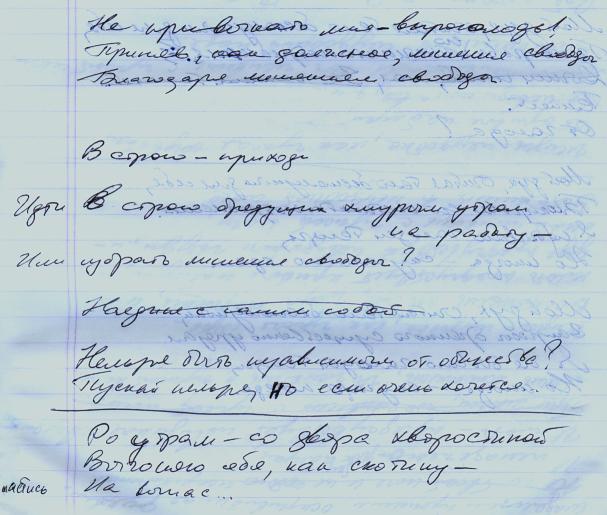 Не привыкать мне – выросло ль!
Приняв, как должное, лишения свободы
Благодаря лишениям свободы
В строю – приходи
Идти В строю бредущих хмурым утром
на работу –
Или избрать лишения свободы?
Наедине с самим собой –
Нельзя быть независимым от общества?
Пускай нельзя, но если очень хочется...
По утрам – со двора хворостиной
Выгоняю себя, как скотину –
На выпас...